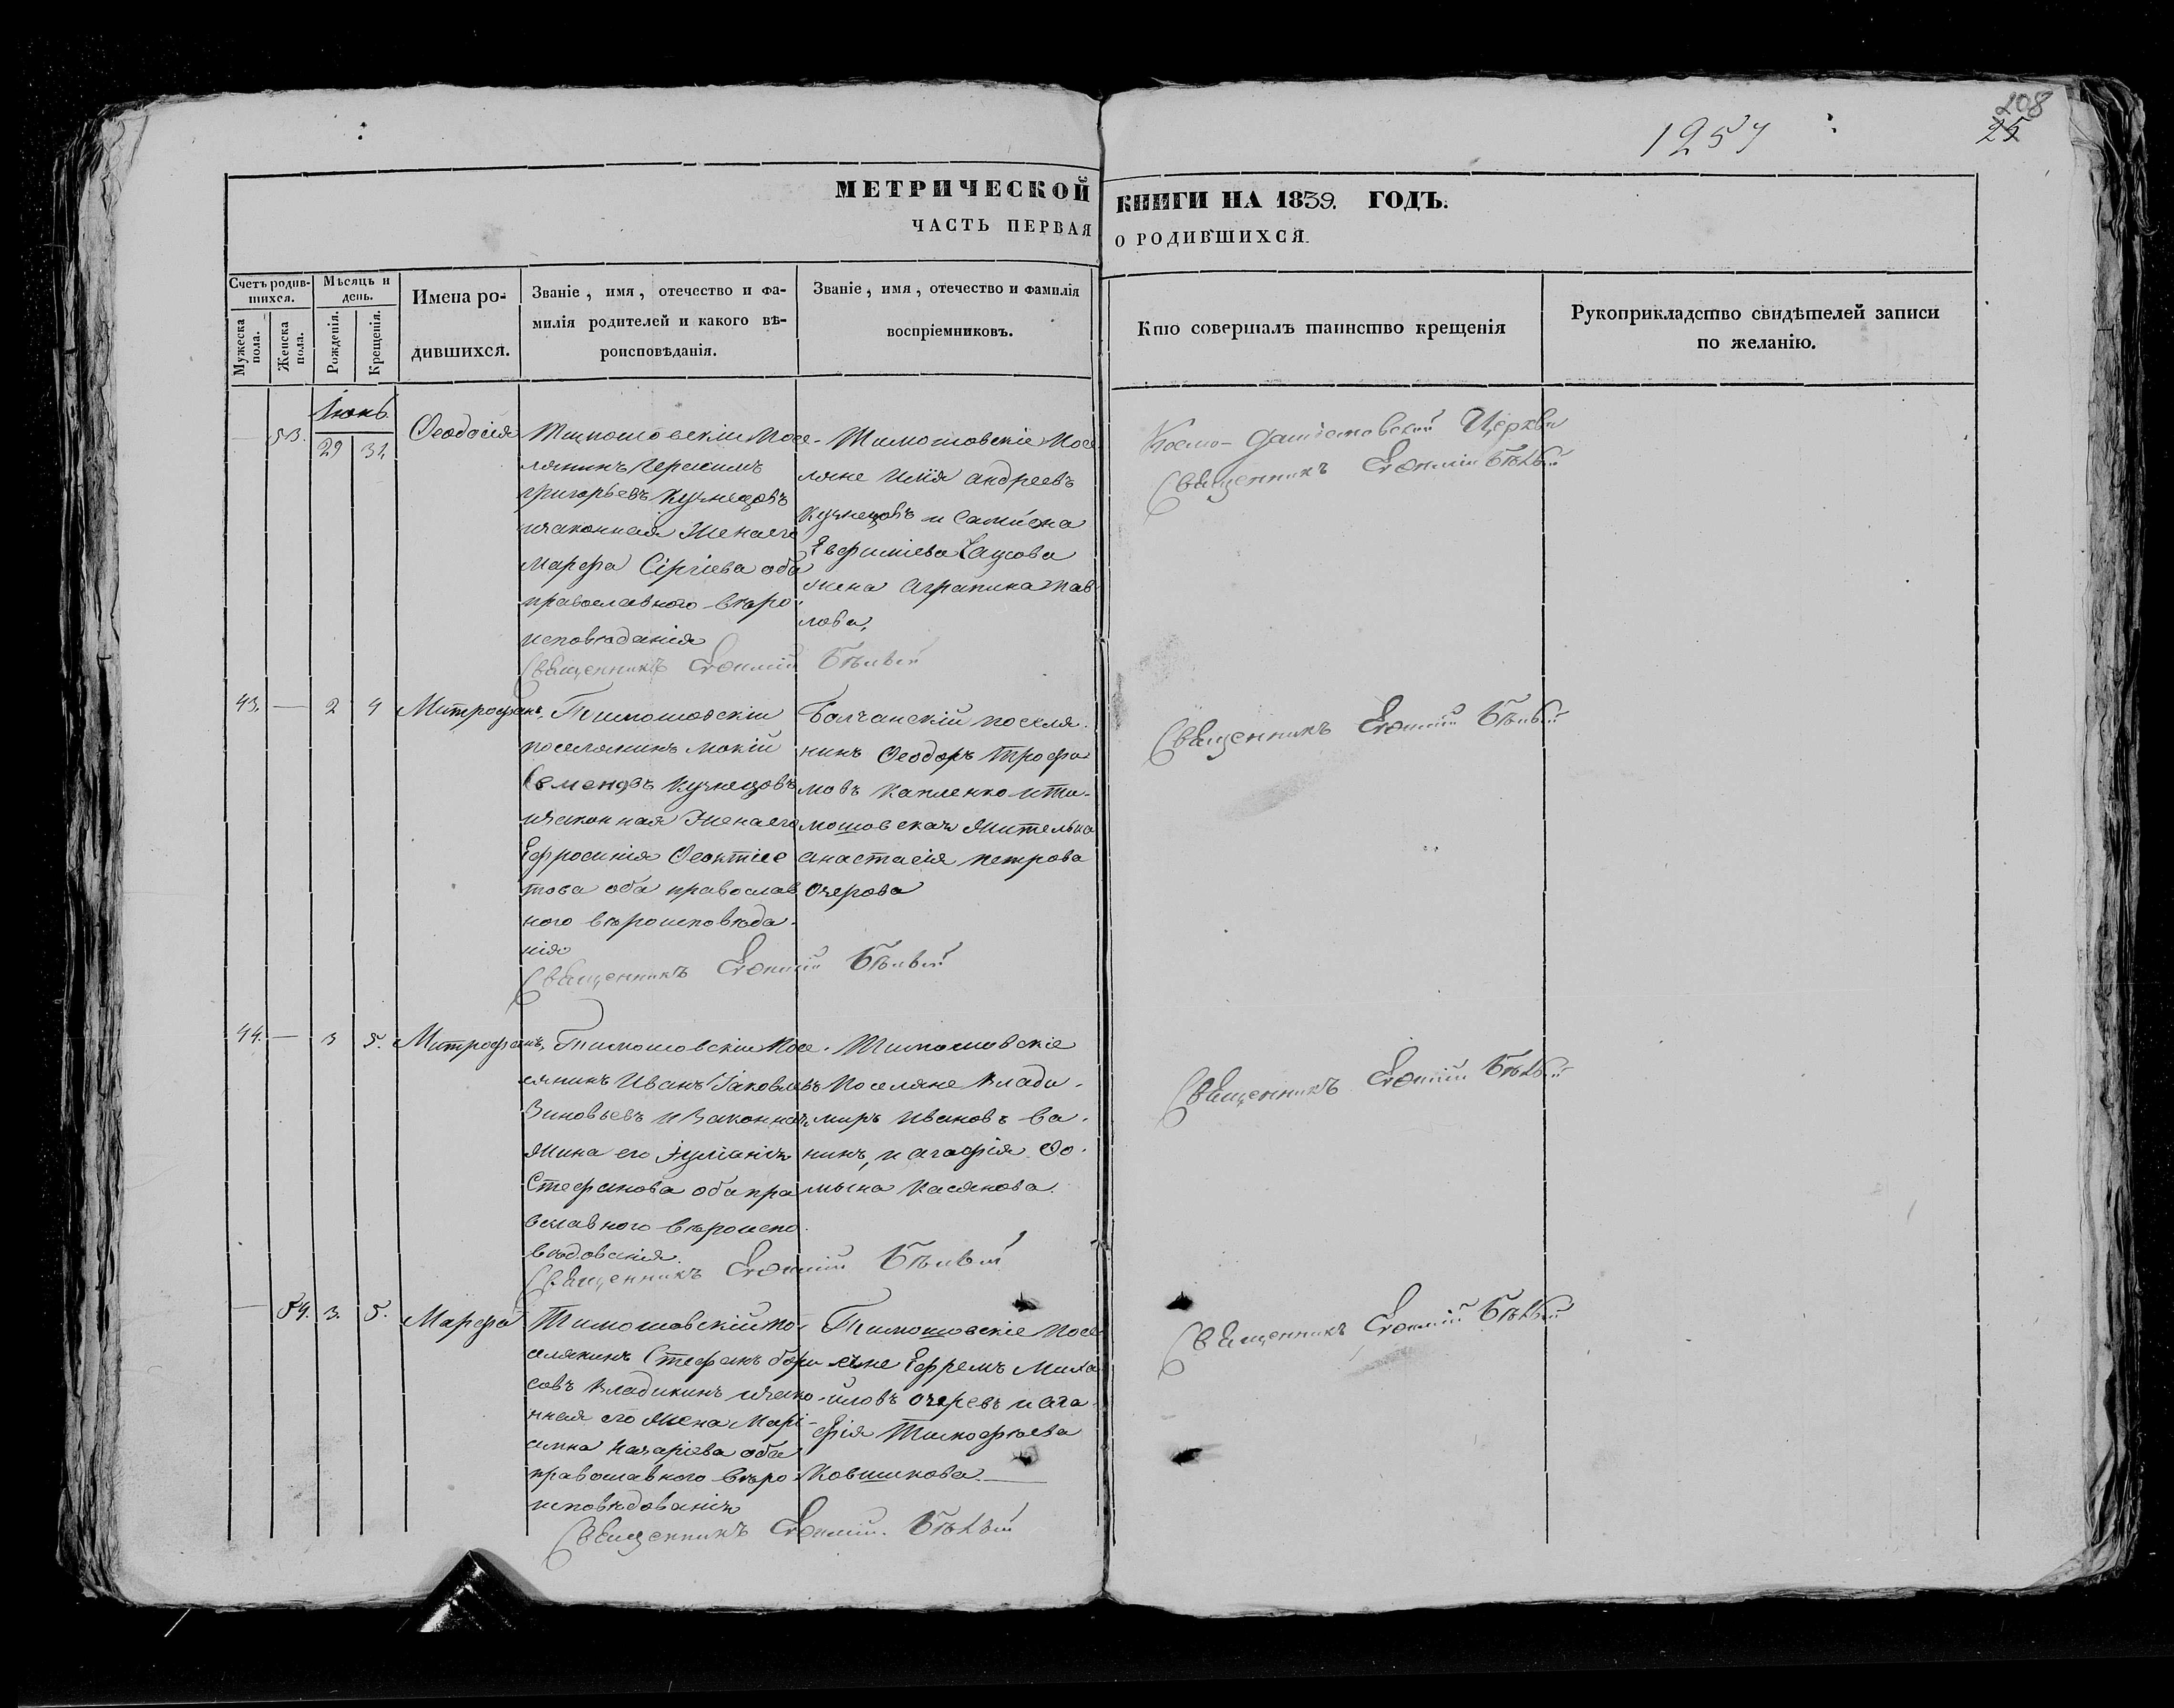 108
1257
25
МЕТРИЧЕСКОЙ КНИГИ НА 1839. ГОДЪ.
ЧАСТЬ ПЕРВАЯ О РОДИВШИХСЯ.
Счетъ родившихся.
Мужеска пола.
Женска пола.
Мѣсяцъ и день.
Рожденія.
Крещенія.
Имена родившихся.
Званіе, имя, отечество и фамилія родителей и какого вѣроисповѣданія.
Званіе, имя, отечество и фамилія воспріемниковъ.
Кто совершалъ таинство крещенія
Рукоприкладство свидѣтелей записи по желанію.
Іюнь.
53.
29
31
Ѳеодосія
Тимошовскій Посе-
лянинъ Герасимъ
григорьевъ Кузнецовъ
изаконная Женаего
Марфа Сергіева оба
православного вѣро-
исповѣданія
Священникъ Евѳимій
Тимошовскіе Посе
ляне Илія андреевъ
кузнецовъ и Самиона
Евфиміева
жена Аграпина Пав
лова,
Космо-Даміановской Церкви
Священникъ Евѳимій
43.
—
2
4
Митрофанъ,
Тимошовскій
поселянинъ мокій
Семеновъ Кузнецовъ
изаконная Женаего
Ефросинія Ѳеоктис
това оба православ
ного вѣроисповѣда-
нія
Священникъ Евѳимій
Балчанскій поселя-
нинъ Ѳеодоръ Трофи
мовъ Капленко иТи-
мошовская Жителька
анастасія петрова
Очерова
Священникъ Евѳимій
44.
—
3
5.
Митрофанъ,
Тимошовскій Посе-
лянинъ Иванъ Іаковлевъ
Зиновьевъ и Законная
Жина его Іуліанія
Стефанова оба пра
вславного вѣроиспо
вѣдованія
Священникъ Евѳимій
Тимошовскіе
Поселяне Влади-
миръ Ивановъ Ва-
нинъ, и агафія Ѳо-
мына Касянова.
Священникъ Евѳимій
—
54.
3.
5.
Марфа
Тимошовскій По-
селянинъ Стефанъ бори
совъ Владикинъ изако-
нная его Жена Марі-
амна Назаріева оба
православного вѣро-
исповѣдованія
Священникъ Евѳимій
Тимошовскіе Посе
ляне Ефремъ Миха
иловъ Очеревъ и Ага-
фія Тимофѣева
Ковшикова.
Священникъ Евѳимій